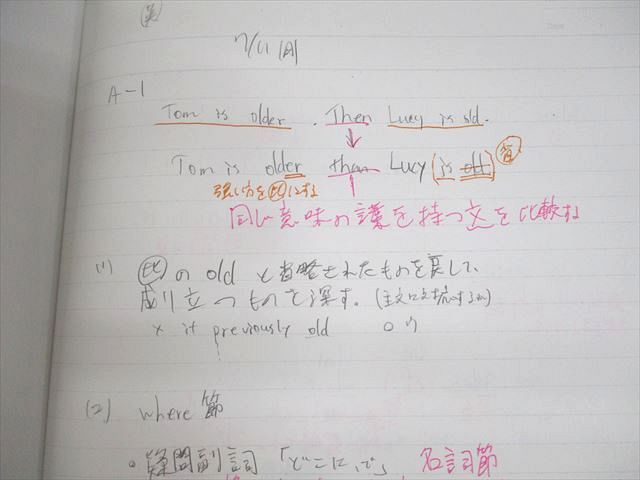 英
7/11 |A|
A-1
Tom is older . Then Lucy is old.
Tom is older than Lucy (is old) 省
強い方を比にする
同じ意味の語を持つ文を比較する
(1) 比の old と省略されたものを戻して、
成り立つものを探す。(主文に対応するか)
× it previously old ○ り
(2) where 節
・疑問副詞「どこに、で」 名詞節